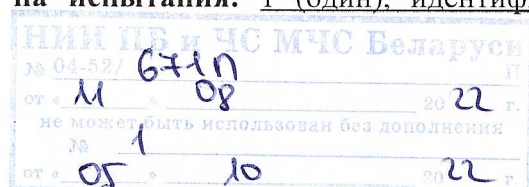 на испытания: 1 (один), идентиф
НИИ ПБ и ЧС МЧС Беларуси
№ 04-52/ 671П П
от « 11 » 08 20 22 г.
не может быть использован без дополнения
№ 1
от « 05 » 10 20 22 г.